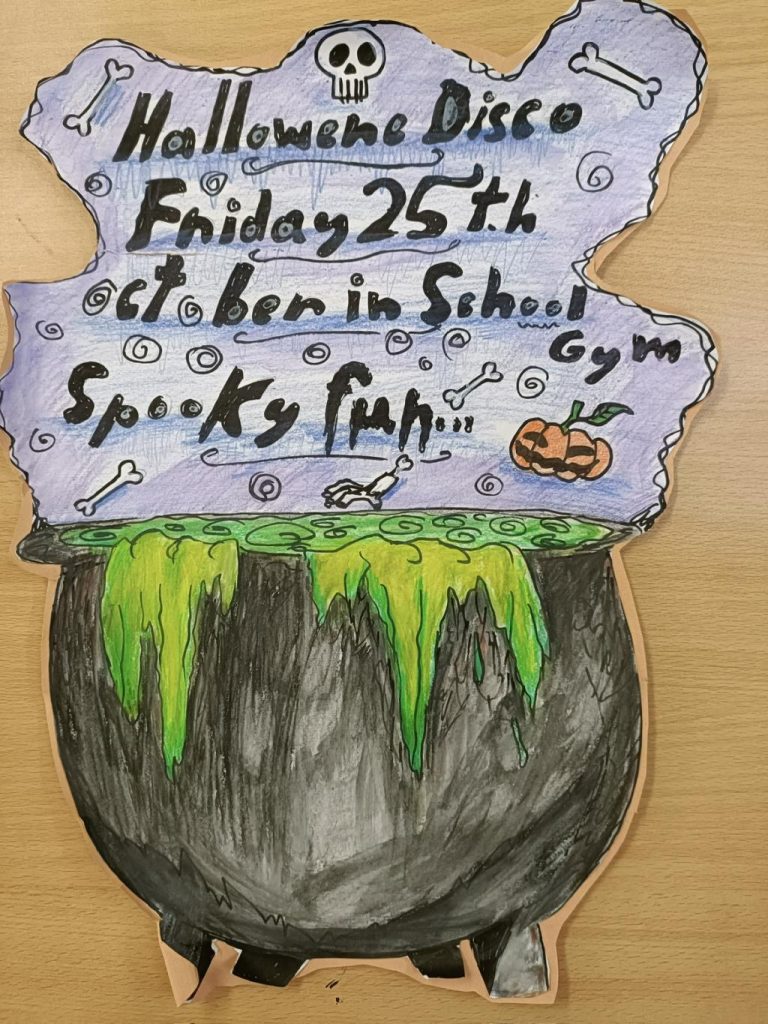 Hallowene Disco
Friday 25th
october in School
Gym
Spooky fun...